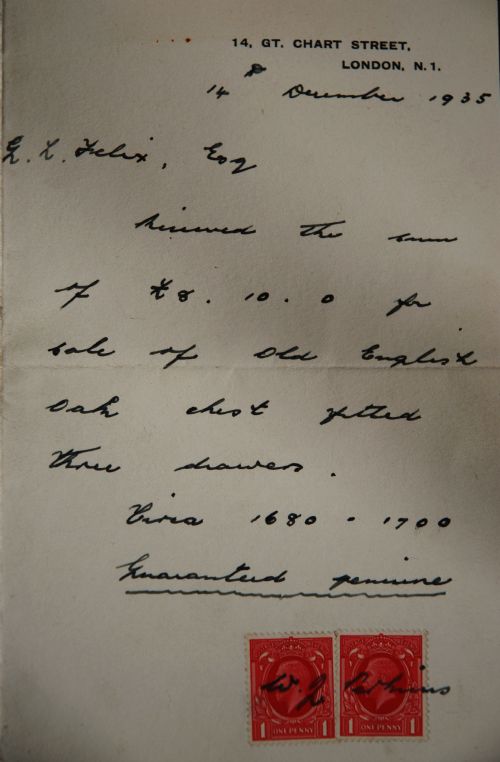 14, GT. CHART STREET,
LONDON, N.1.
14 December 1935
G. L. Felix, Esq
Received the sum
of £8. 10. 0 for
sale of Old English
Oak chest fitted
three drawers.
Circa 1680 - 1700
Guaranteed genuine
W. J. Perkins
1 ONE PENNY 1 1 ONE PENNY 1